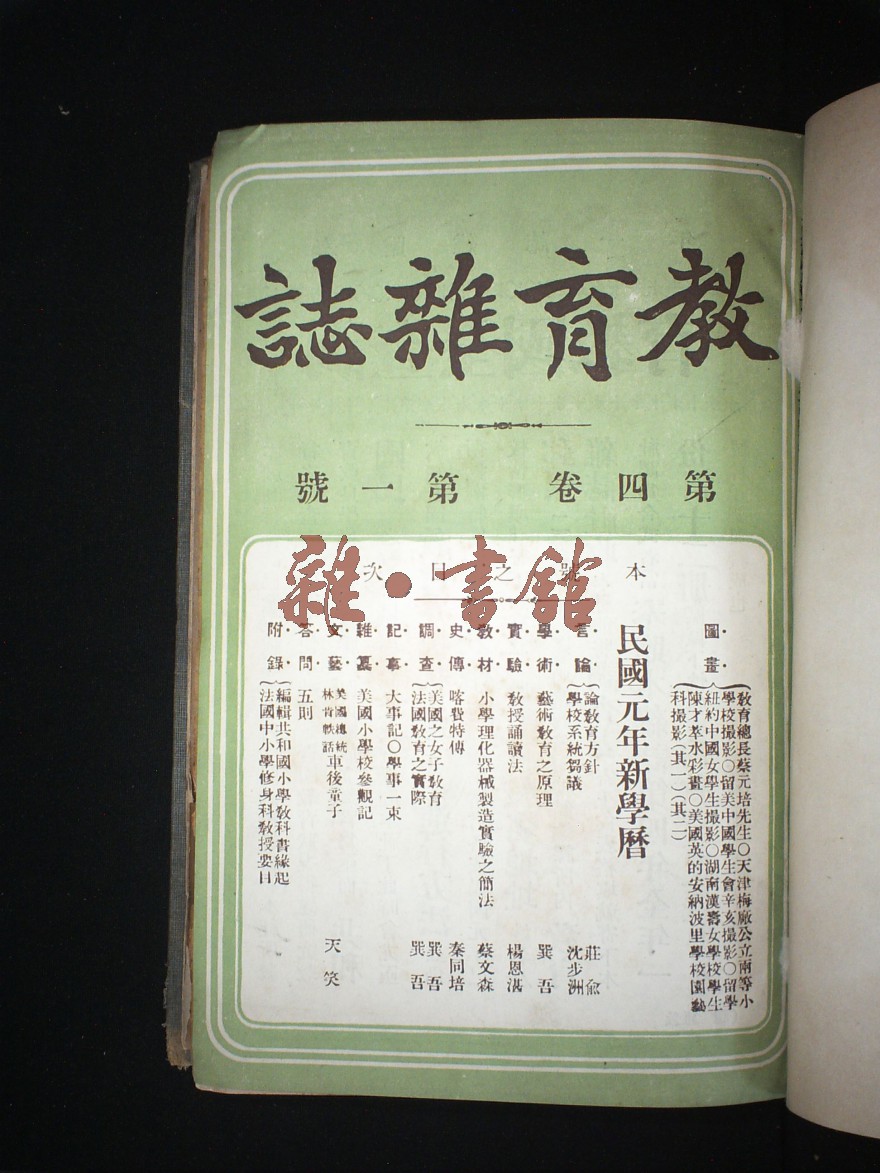 教育雜誌
第四卷 第一號
本號之目次
圖畫
教育總長蔡元培先生〇天津梅廠公立兩等小
學校撮影〇留美中國學生會辛亥撮影〇留學
紐約中國女學生撮影〇湖南漢壽女學校學生
陳才萃水彩畫〇美國英的安納波里學校園藝
科撮影(其一)(其二)
民國元年新學曆
言論
論教育方針 莊俞
學校系統芻議 沈步洲
學術 藝術教育之原理 巽吾
實驗 教授誦讀法 楊恩湛
教材 小學理化器械製造實驗之簡法 蔡文森
史傳 喀費特傳 秦同培
調查
美國之女子教育 巽吾
法國教育之實際 巽吾
記事 大事記〇學事一束
雜纂 美國小學校參觀記
文藝 美國總統林肯軼話 車後童子 天笑
答問 五則
附錄
編輯共和國小學教科書緣起
法國中小學修身科教授要目
雜·書館